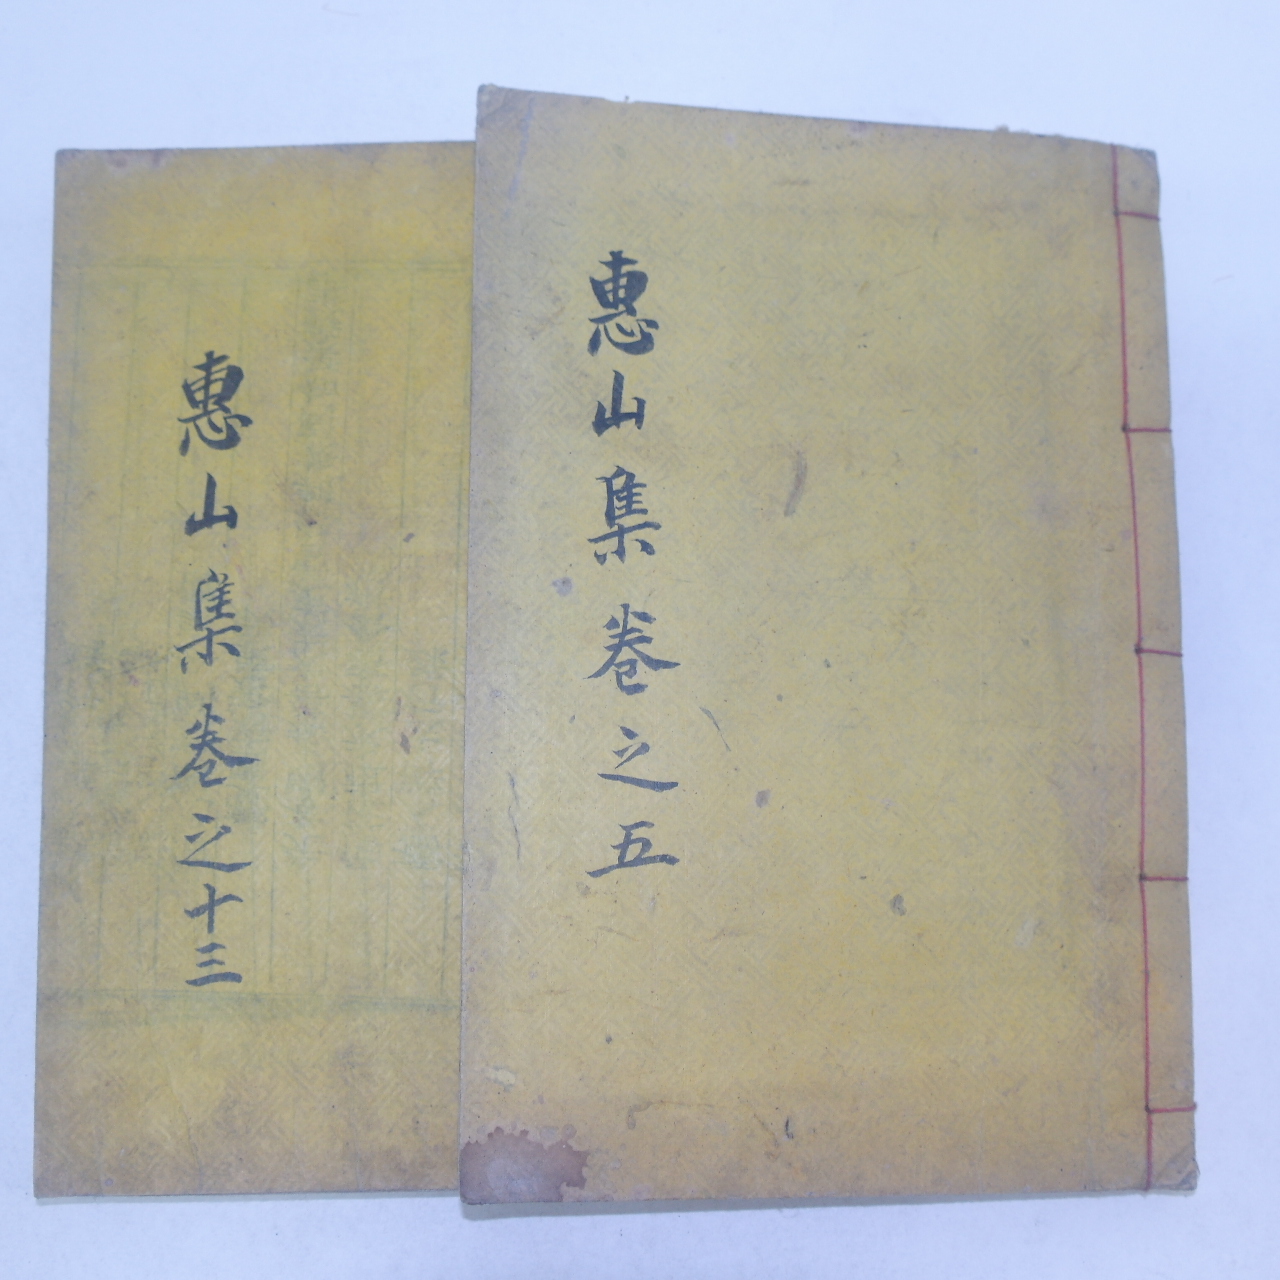 惠山集卷之五
惠山集卷之十三